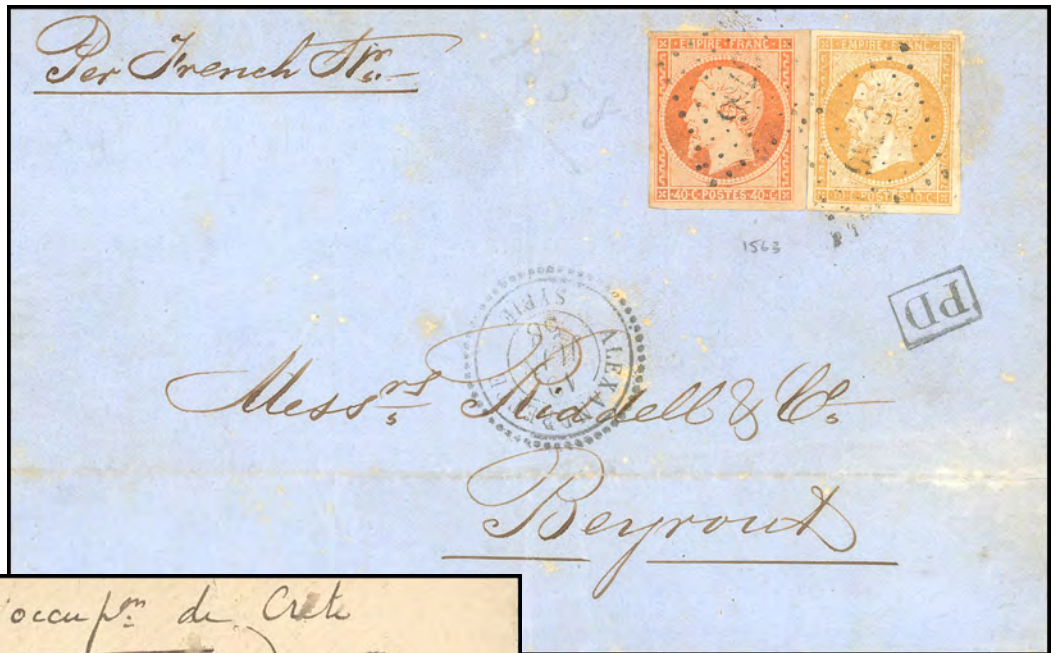 Per French Str.
EMPIRE · FRANC ·
40·C·POSTES·40·C
EMPIRE · FRANC ·
10·C·POSTES·10·C
1563
PD
ALEXANDRETTE
SYRIE
Messrs Riddell & Co.
Beyrout
occupn de Crète